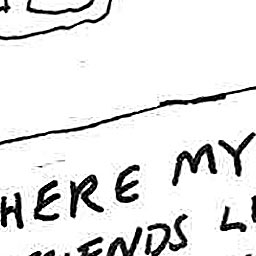 HERE MY
ENDS LI